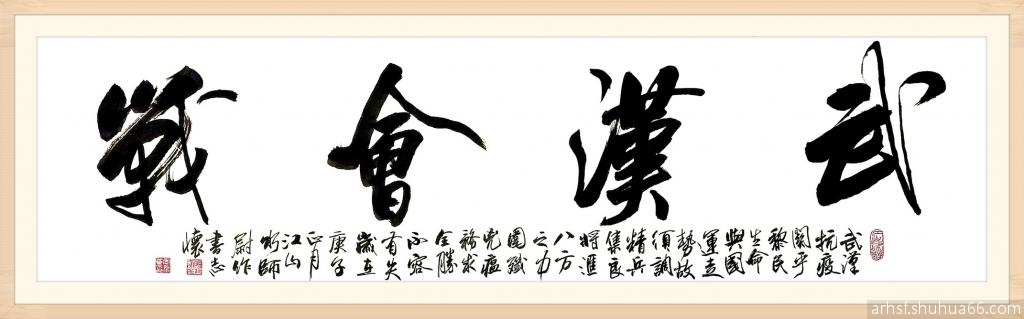 武漢會戰
武漢
抗疫
関乎
黎民
生命
與國
運走
勢故
須調
精兵
集良
將滙
八方
之力
圍殲
兇瘟
務求
全勝
不容
有失
歲在
庚子
正月
江
師
尉作
書志
懷
arhsf.shuhua66.com